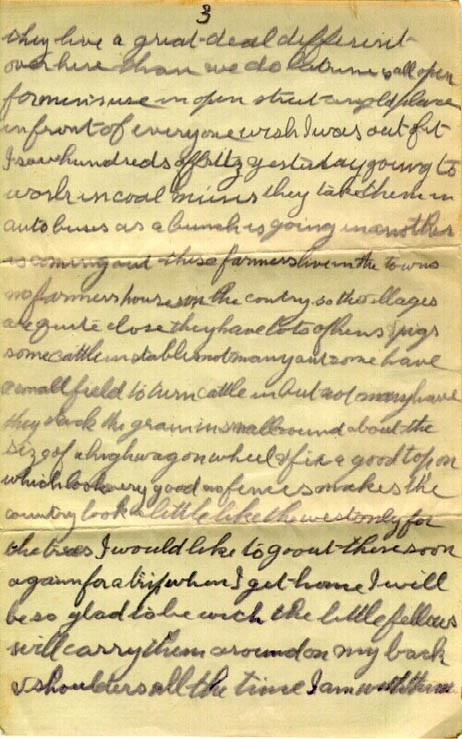 3
they live a great deal different
over here than we do latrine is all open
for men's use in open street any old place
in front of everyone wish I was out of it
I saw hundreds of fritz yesterday going to
work in coal mines they take them in
auto buses as a bunch is going in another
is coming out these farmers live in the towns
no farmers houses in the contry so the villages
are quite close they have lots of hens & pigs
some cattle in stables not many and some have
a small field to turn cattle in but not many have
they stack the grain in small round about the
size of a high wagon wheel & fix a good top on
which looks very good no fences makes the
country look a little like the west only for
the trees I would like to go out there soon
again for a trip when I get home I will
be so glad to be with the little fellows
will carry them around on my back
& shoulders all the time I am with them